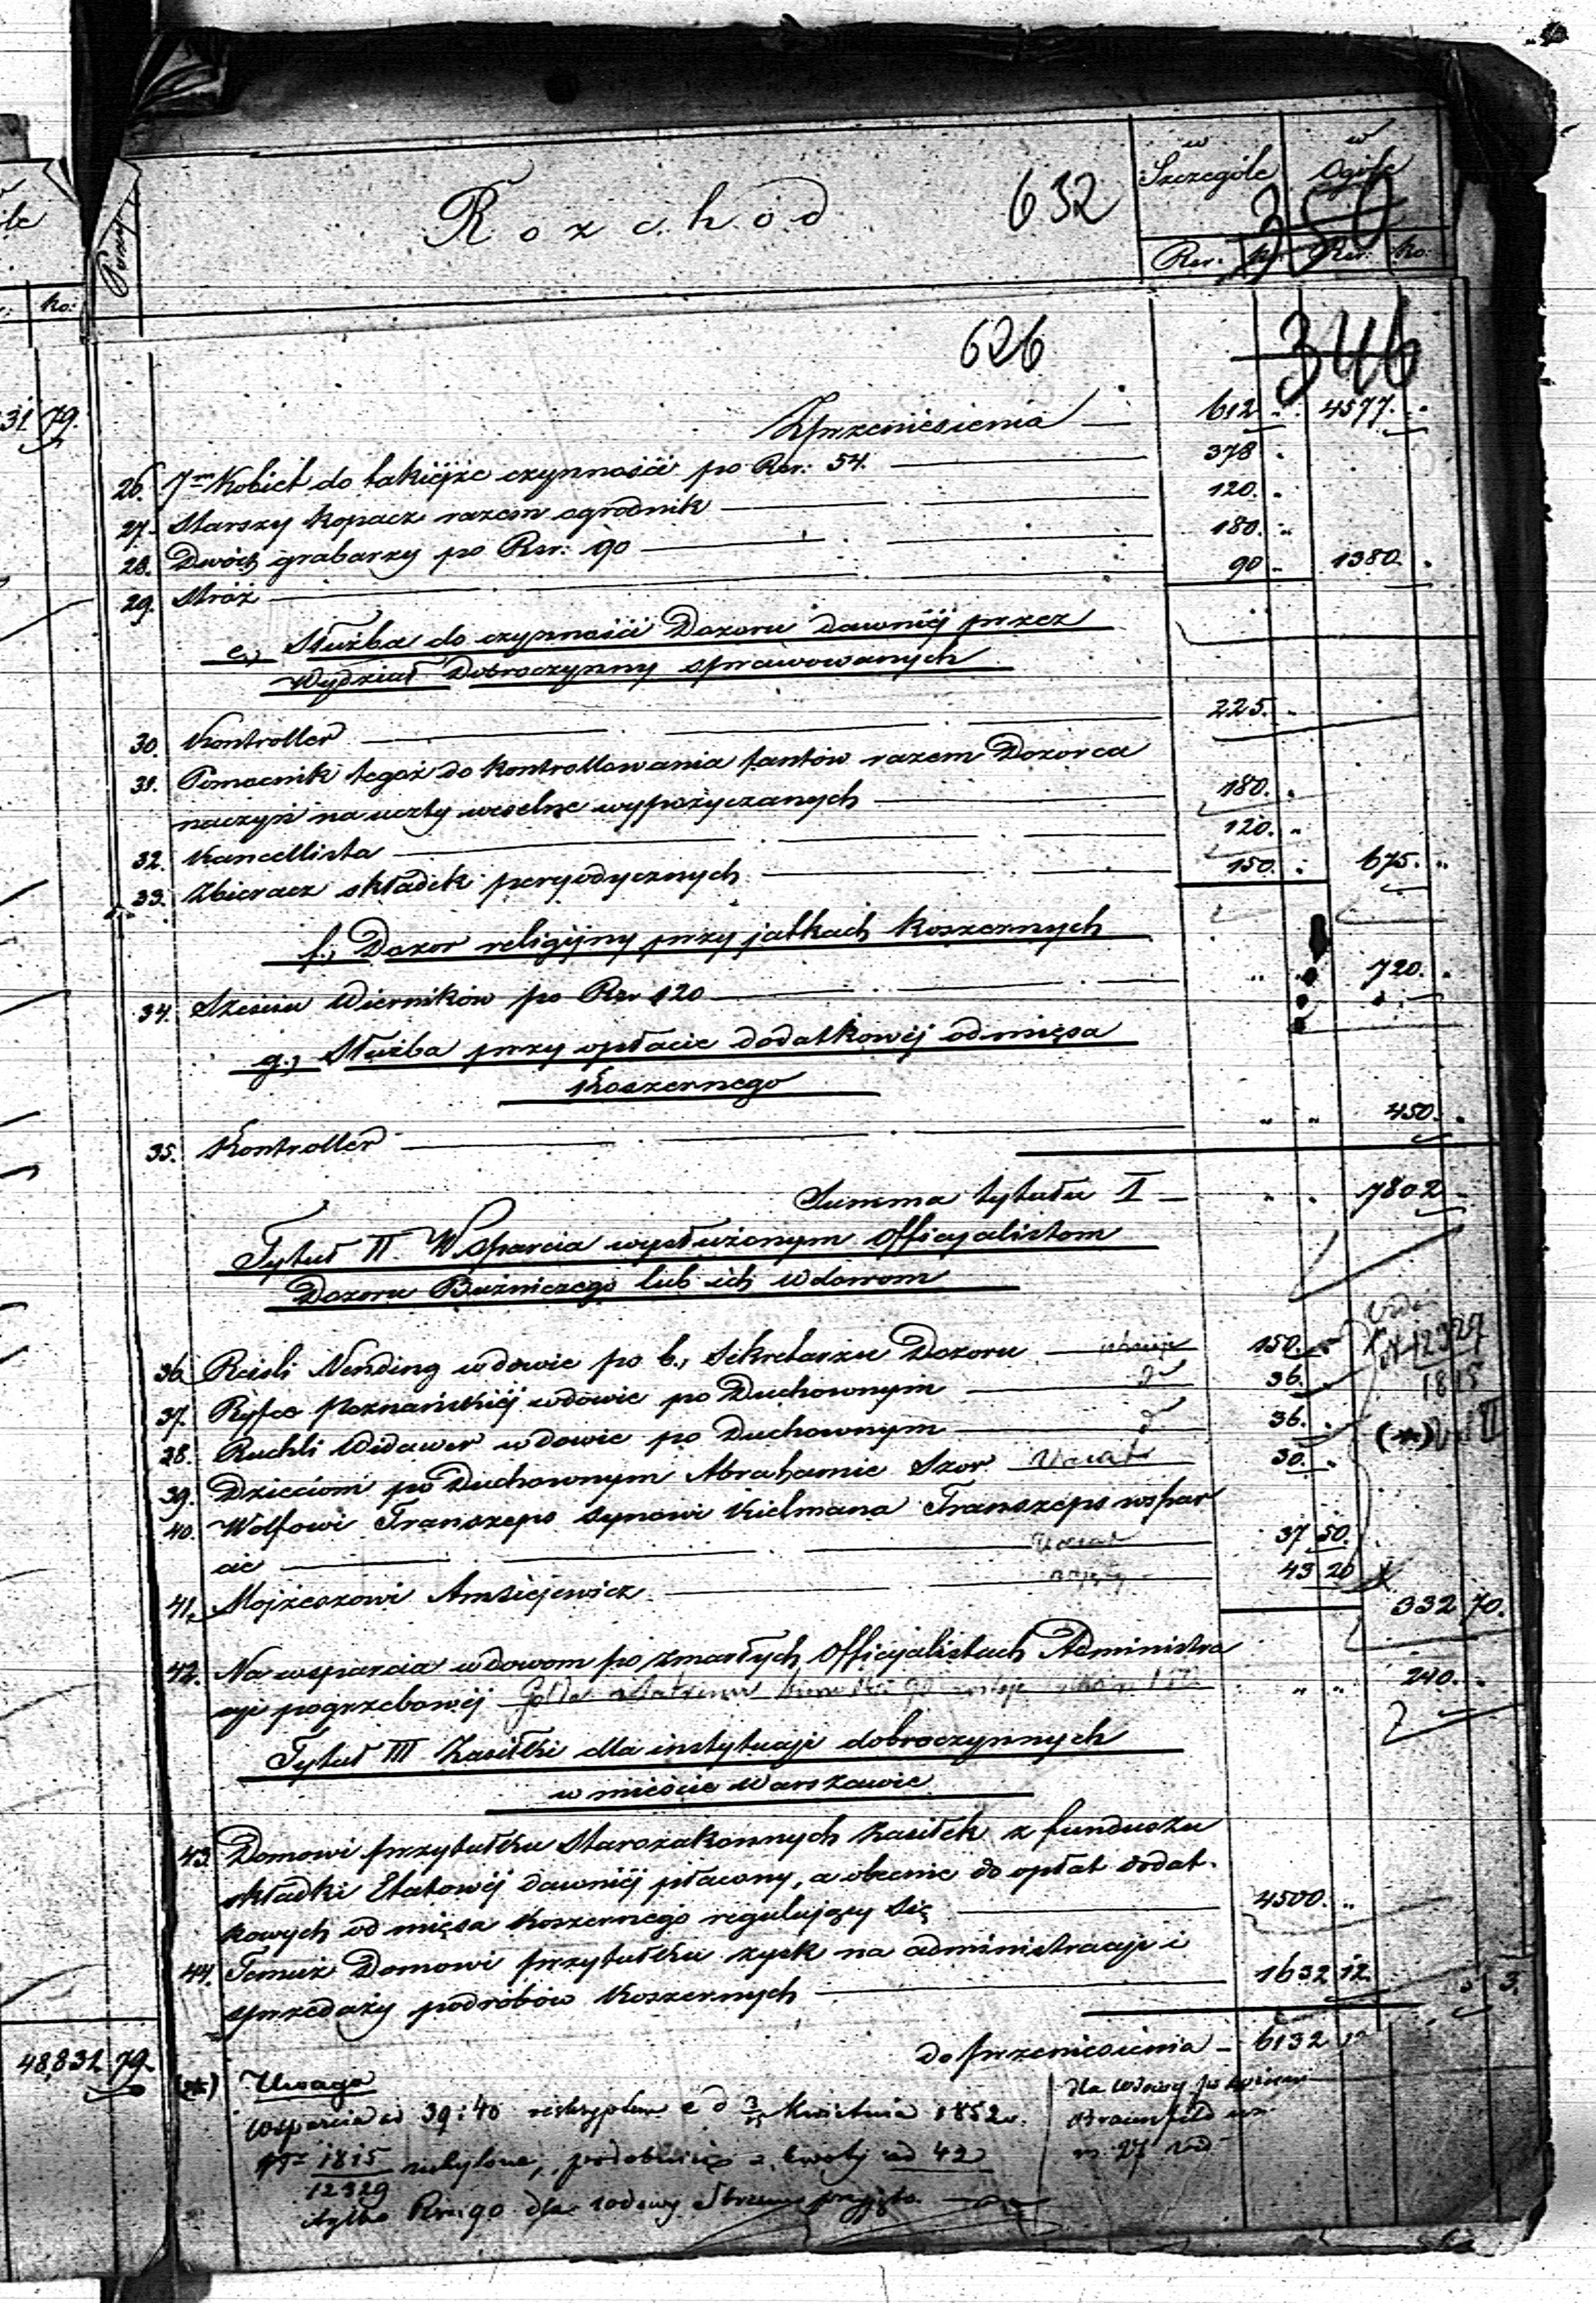 w Szczególe
w Ogóle
Rozchód
632
350
Pozyt
Rsr: k: Rsr: ko:
ko:
626
346
Z przeniesienia — 612 „ 4577. „
31 79.
26. 7m Kobiet do takiéjże czynności po Rsr: 54. — 378 „
27. Starszy kopacz razem ogrodnik — 120. „
28. Dwóch grabarzy po Rsr: 90 — 180. „
29. Stróż — 90 „ 1380. „
e., Służba do czynności Dozoru dawniéj przez
Wydział Dobroczynny sprawowanych
30. Kontroller — 225. „
31. Pomocnik tegoż do kontrollowania fantów razem Dozorca
naczyń na uczty weselne wypożyczanych — 180. „
32. Kancellista — 120. „
33. Zbieracz składek peryodycznych — 150. „ 675. „
f., Dozor religijny przy jatkach koszernych
34. Sześciu Wierników po Rsr 120 — „ „ 720. „
g., Służba przy opłacie dodatkowéj od mięsa
Koszernego
35. Kontroller — „ „ 450. „
Summa tytułu I — „ „ 7802 „
Tytuł II. Wsparcia wysłużonym Officyalistom
Dozoru Bużniczego lub ich Wdowom
36. Reisli Nending wdowie po b., Sekretarzu Dozoru — 150. „
N 12329
1815
37. Ryfce Poznańskiéj wdowie po Duchownym — 36. „
38. Ruchli Widawer wdowie po Duchownym — 36. „
(*)
39. Dzieciom po Duchownym Abrahamie Szor Vacat 30. „
40. Wolfowi Transzeps synowi Kielmana Transzeps wspar
cie — Vacat 37 50.
41. Mojżeszowi Amsiejewicz — 43 20
332 70.
42. Na wsparcia wdowom po zmarłych Officyalistach Administra
cyi pogrzebowéj „ „ 240. „
Tytuł III Zasiłki dla instytucyi dobroczynnych
w mieście Warszawie
43. Domowi przytułku Starozakonnych zasiłek z funduszu
składki Etatowéj dawniéj płacony, a obecnie do opłat dodat-
kowych od mięsa koszernego regulujący się — 4500. „
44. Temuż Domowi przytułku zysk na administracyi i
sprzedaży podrobów koszernych — 1632 12.
do przeniesienia — 6132 12
48,831 79.
(*) Uwaga
Wsparcia ad 39 i 40 reskryptem z d Kwietnia 1852 r.
Nr 1815
12329
uchylone, podobnież z kwoty ad 42
tylko Rsr. 90 dla wdowy przyjęto.
dla Wdowy po